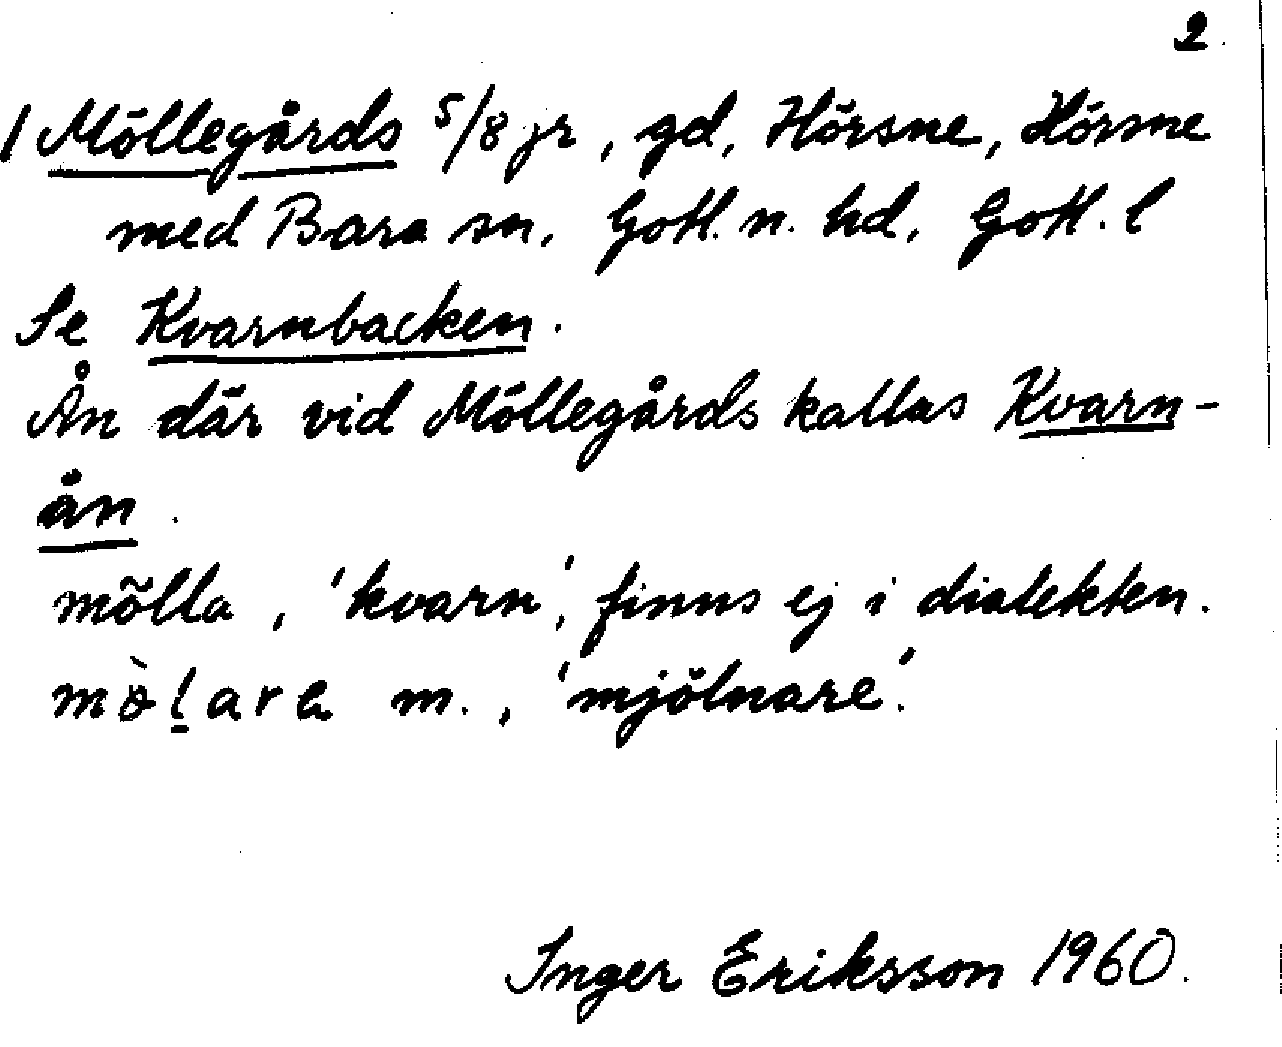 2.
/ Möllegårds 5/8 jr, gd, Hörsne, Hörsne
med Bara sn, Gotl. n. hd, Gotl. l
Se Kvarnbacken.
Ån där vid Möllegårds kallas Kvarn-
ån.
mölla, 'kvarn', finns ej i dialekten.
mö̀l̲are m., 'mjölnare'.
Inger Eriksson 1960.